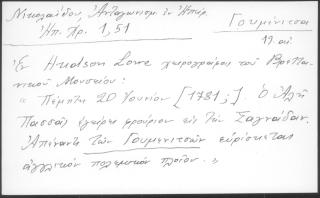 Νικολαΐδου, Ἀνταγωνισμ. ἐν Ἠπείρ.
Ἠπ. Χρ. 1,51
Γουμένιτσα
19. αἰ
Ἐκ Hudson Lowe χειρογράφου τοῦ Βρεττανικοῦ Μουσείου:
" Πέμπτη 20 Ἰουνίου [1781;] Ὁ Ἀλῆ
Πασσᾶς ἐγείρει φρούριον εἰς τὴν Σαγιάδαν.
Ἀπέναντι τῶν Γουμενιτσῶν εὑρίσκεται
ἀγγλικὸν πολεμικὸν πλοῖον. "